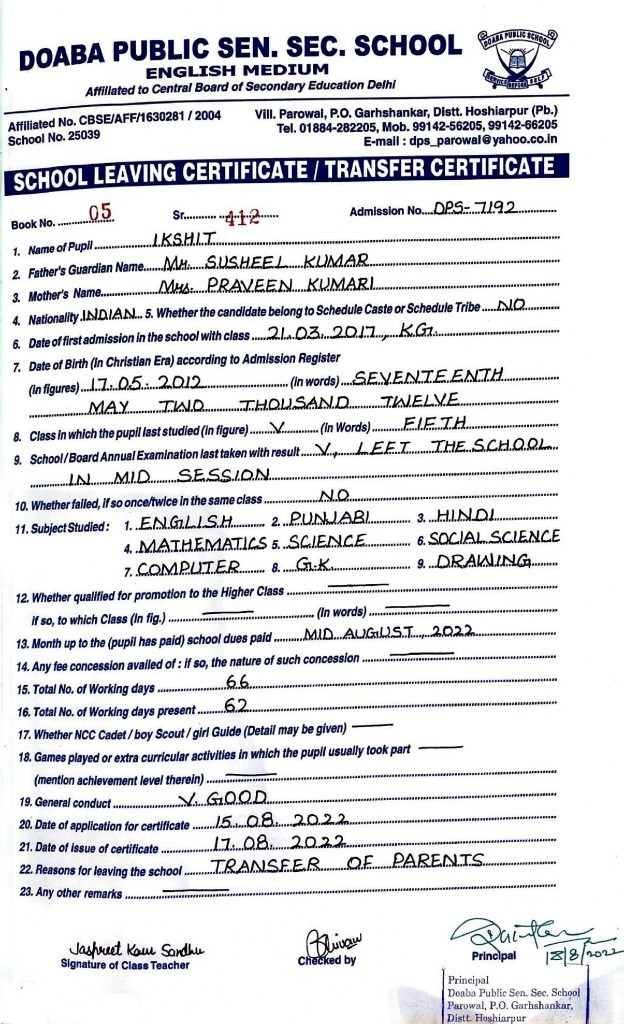 DOABA PUBLIC SEN. SEC. SCHOOL
DOABA PUBLIC SCHOOL
ENGLISH MEDIUM
Affiliated to Central Board of Secondary Education Delhi
Affiliated No. CBSE/AFF/1630281 / 2004
School No. 25039
Vill. Parowal, P.O. Garhshankar, Distt. Hoshiarpur (Pb.)
Tel. 01884-282205, Mob. 99142-56205, 99142-66205
E-mail : dps_parowal@yahoo.co.in
SCHOOL LEAVING CERTIFICATE / TRANSFER CERTIFICATE
Book No. 05 Sr. 412 Admission No. DPS-7192
1. Name of Pupil IKSHIT
2. Father's Guardian Name Mr. SUSHEEL KUMAR
3. Mother's Name Mrs. PRAVEEN KUMARI
4. Nationality INDIAN 5. Whether the candidate belong to Schedule Caste or Schedule Tribe NO
6. Date of first admission in the school with class 21.03.2017, K.G.
7. Date of Birth (In Christian Era) according to Admission Register
(In figures) 17.05.2012 (In words) SEVENTEENTH
MAY TWO THOUSAND TWELVE
8. Class in which the pupil last studied (in figure) V (In Words) FIFTH
9. School / Board Annual Examination last taken with result V, LEFT THE SCHOOL
IN MID SESSION
10. Whether failed, if so once/twice in the same class NO
11. Subject Studied : 1. ENGLISH 2. PUNJABI 3. HINDI
4. MATHEMATICS 5. SCIENCE 6. SOCIAL SCIENCE
7. COMPUTER 8. G.K 9. DRAWING
12. Whether qualified for promotion to the Higher Class
if so, to which Class (In fig.) (In words)
13. Month up to the (pupil has paid) school dues paid MID AUGUST, 2022
14. Any fee concession availed of : if so, the nature of such concession
15. Total No. of Working days 66
16. Total No. of Working days present 62
17. Whether NCC Cadet / boy Scout / girl Guide (Detail may be given)
18. Games played or extra curricular activities in which the pupil usually took part
(mention achievement level therein)
19. General conduct V. GOOD
20. Date of application for certificate 15.08.2022
21. Date of issue of certificate 17.08.2022
22. Reasons for leaving the school TRANSFER OF PARENTS
23. Any other remarks
Jaspreet Kaur Sandhu
Signature of Class Teacher
Checked by
Principal 18/8/2022
Principal
Doaba Public Sen. Sec. School
Parowal, P.O. Garhshankar,
Distt. Hoshiarpur